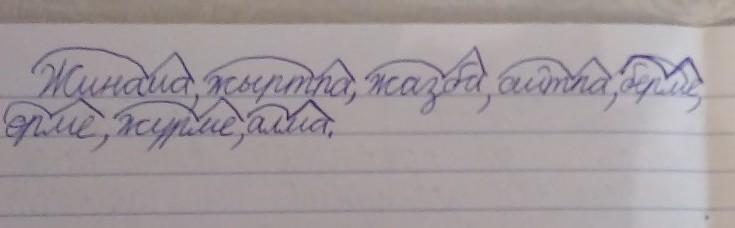 Жинама, жыртпа, жазба, айтпа, берме,
ерме, журме, алма.